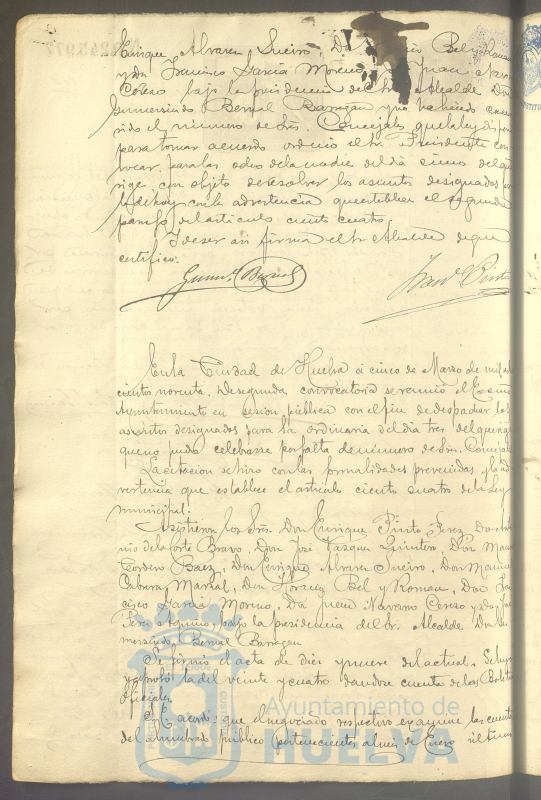 Enrique Alvarez Sueiro, Don Bel y Roman
y Don Francisco Garcia Moreno Juan Nava
Cerezo bajo la presidencia del Sr. Alcalde Don
Gumersindo Bernal Barragan y no habiendo concu
rido el numero de Sres. Concejales que la ley dispone
para tomar acuerdo ordenó el Sr. Presidente con
vocar para las ocho de la noche del dia cinco del que
rige con objeto de resolver los asuntos designados p
la de hoy con la advertencia que establece el segundo
parrafo del articulo ciento cuatro.
Y de ser asi firma el Sr. Alcalde de que
certifico:
Gumdo. Bernal
Pinto
En la Ciudad de Huelva á cinco de Marzo de mil och
cientos noventa. De segunda convocatoria se reunió el Excmo
Ayuntamiento en sesion pública con el fin de despachar los
asuntos designados para la ordinaria del dia tres del que rige
que no pudo celebrarse por falta de número de Sres. Concejales
La citacion se hizo con las formalidades prevenidas y la ad
vertencia que establece el articulo ciento cuatro de la Ley
municipal.
Asistieron los Sres. Don Enrique Pinto Perez, Don Anto
nio de la Corte Bravo, Don José Vazquez Quintero, Don Man
Cordero Baez, Don Enrique Alvarez Sueiro, Don Man
Cabrera Marzal, Don Horacio Bel y Roman, Don Fran
cisco Garcia Moreno, Don Juan Navarro Cerezo y Don
Perez Aquino, bajo la presidencia del Sr. Alcalde Don Gu
mersindo Bernal Barragan
Se firmó el acta de diez y nueve del actual. Se leyó
y aprobó la del veinte y cuatro dandose cuenta de los Boletines
Oficiales.
Se acordó: que el negociado respectivo examine las cuentas
del alumbrado público pertenecientes al mes de Enero ultimo
Ayuntamiento de
HUELVA